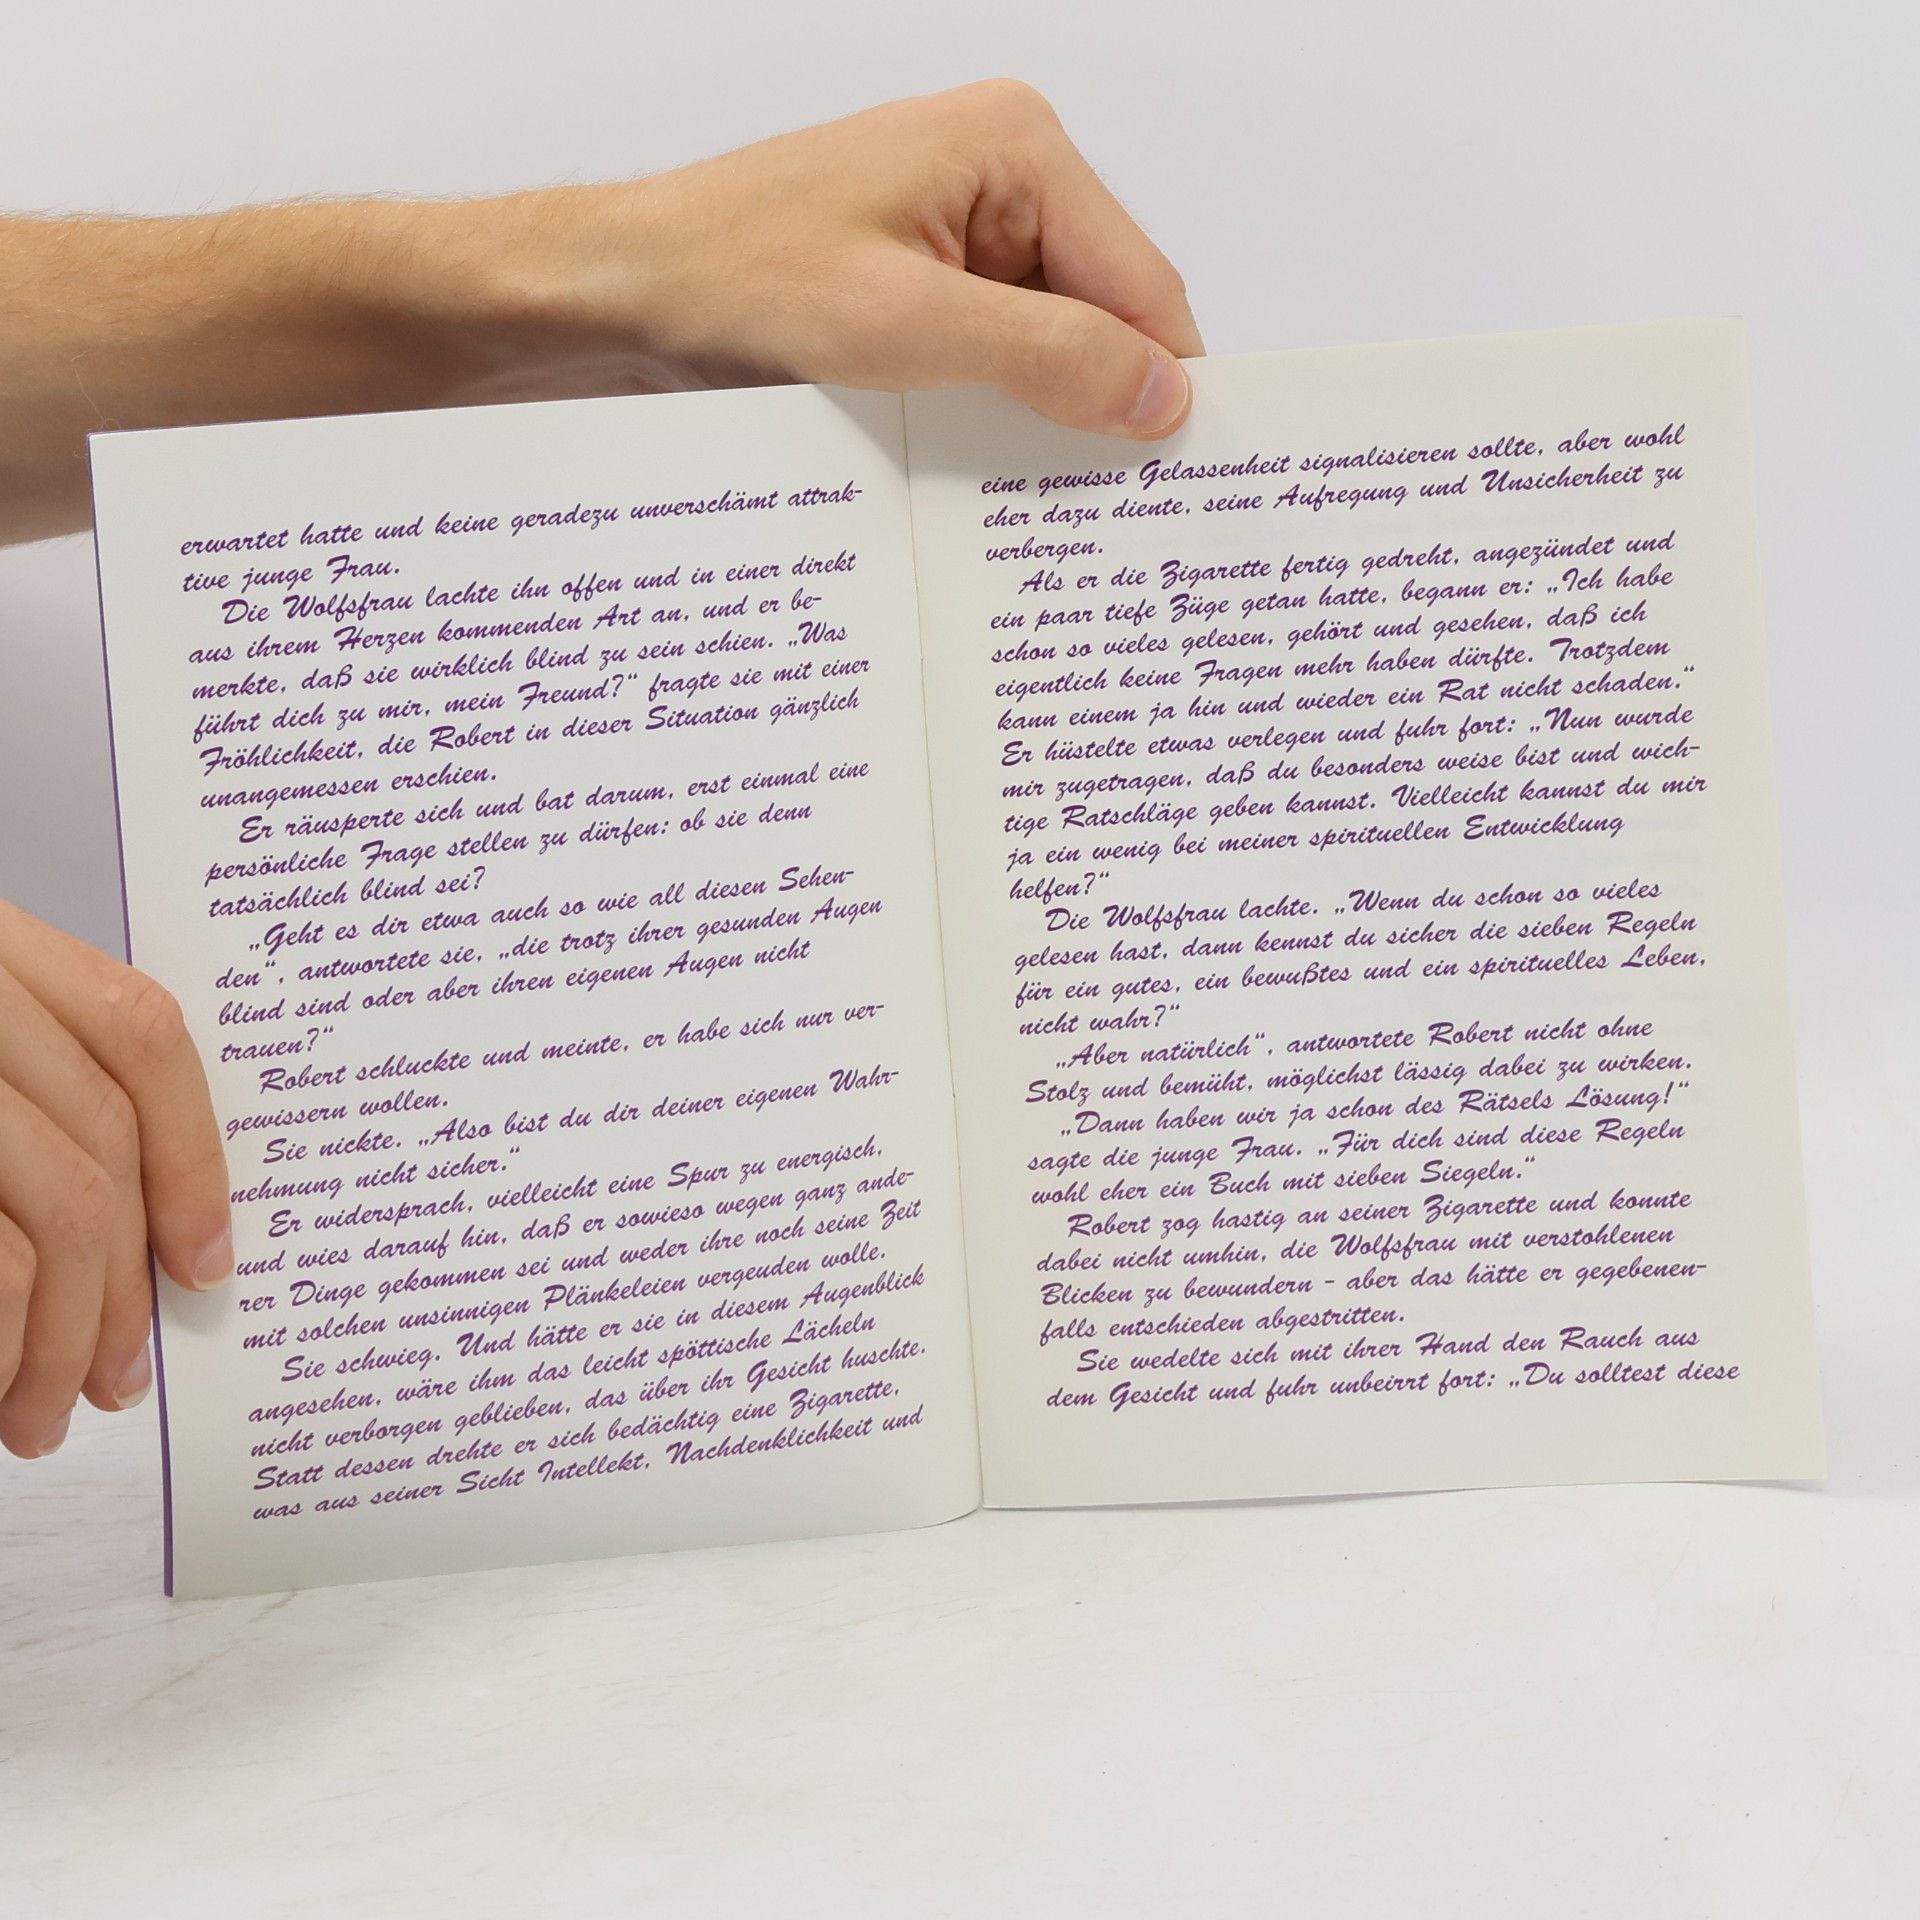 erwartet hatte und keine geradezu unverschämt attrak-
tive junge Frau.
Die Wolfsfrau lachte ihn offen und in einer direkt
aus ihrem Herzen kommenden Art an, und er be-
merkte, daß sie wirklich blind zu sein schien. „Was
führt dich zu mir, mein Freund?“ fragte sie mit einer
Fröhlichkeit, die Robert in dieser Situation gänzlich
unangemessen erschien.
Er räusperte sich und bat darum, erst einmal eine
persönliche Frage stellen zu dürfen: ob sie denn
tatsächlich blind sei?
„Geht es dir etwa auch so wie all diesen Sehen-
den“, antwortete sie, „die trotz ihrer gesunden Augen
blind sind oder aber ihren eigenen Augen nicht
trauen?“
Robert schluckte und meinte, er habe sich nur ver-
gewissern wollen.
Sie nickte. „Also bist du dir deiner eigenen Wahr-
nehmung nicht sicher.“
Er widersprach, vielleicht eine Spur zu energisch,
und wies darauf hin, daß er sowieso wegen ganz ande-
rer Dinge gekommen sei und weder ihre noch seine Zeit
mit solchen unsinnigen Plänkeleien vergeuden wolle.
Sie schwieg. Und hätte er sie in diesem Augenblick
angesehen, wäre ihm das leicht spöttische Lächeln
nicht verborgen geblieben, das über ihr Gesicht huschte.
Statt dessen drehte er sich bedächtig eine Zigarette,
was aus seiner Sicht Intellekt, Nachdenklichkeit und
eine gewisse Gelassenheit signalisieren sollte, aber wohl
eher dazu diente, seine Aufregung und Unsicherheit zu
verbergen.
Als er die Zigarette fertig gedreht, angezündet und
ein paar tiefe Züge getan hatte, begann er: „Ich habe
schon so vieles gelesen, gehört und gesehen, daß ich
eigentlich keine Fragen mehr haben dürfte. Trotzdem
kann einem ja hin und wieder ein Rat nicht schaden.“
Er hüstelte etwas verlegen und fuhr fort: „Nun wurde
mir zugetragen, daß du besonders weise bist und wich-
tige Ratschläge geben kannst. Vielleicht kannst du mir
ja ein wenig bei meiner spirituellen Entwicklung
helfen?“
Die Wolfsfrau lachte. „Wenn du schon so vieles
gelesen hast, dann kennst du sicher die sieben Regeln
für ein gutes, ein bewußtes und ein spirituelles Leben,
nicht wahr?“
„Aber natürlich“, antwortete Robert nicht ohne
Stolz und bemüht, möglichst lässig dabei zu wirken.
„Dann haben wir ja schon des Rätsels Lösung!“
sagte die junge Frau. „Für dich sind diese Regeln
wohl eher ein Buch mit sieben Siegeln.“
Robert zog hastig an seiner Zigarette und konnte
dabei nicht umhin, die Wolfsfrau mit verstohlenen
Blicken zu bewundern - aber das hätte er gegebenen-
falls entschieden abgestritten.
Sie wedelte sich mit ihrer Hand den Rauch aus
dem Gesicht und fuhr unbeirrt fort: „Du solltest diese